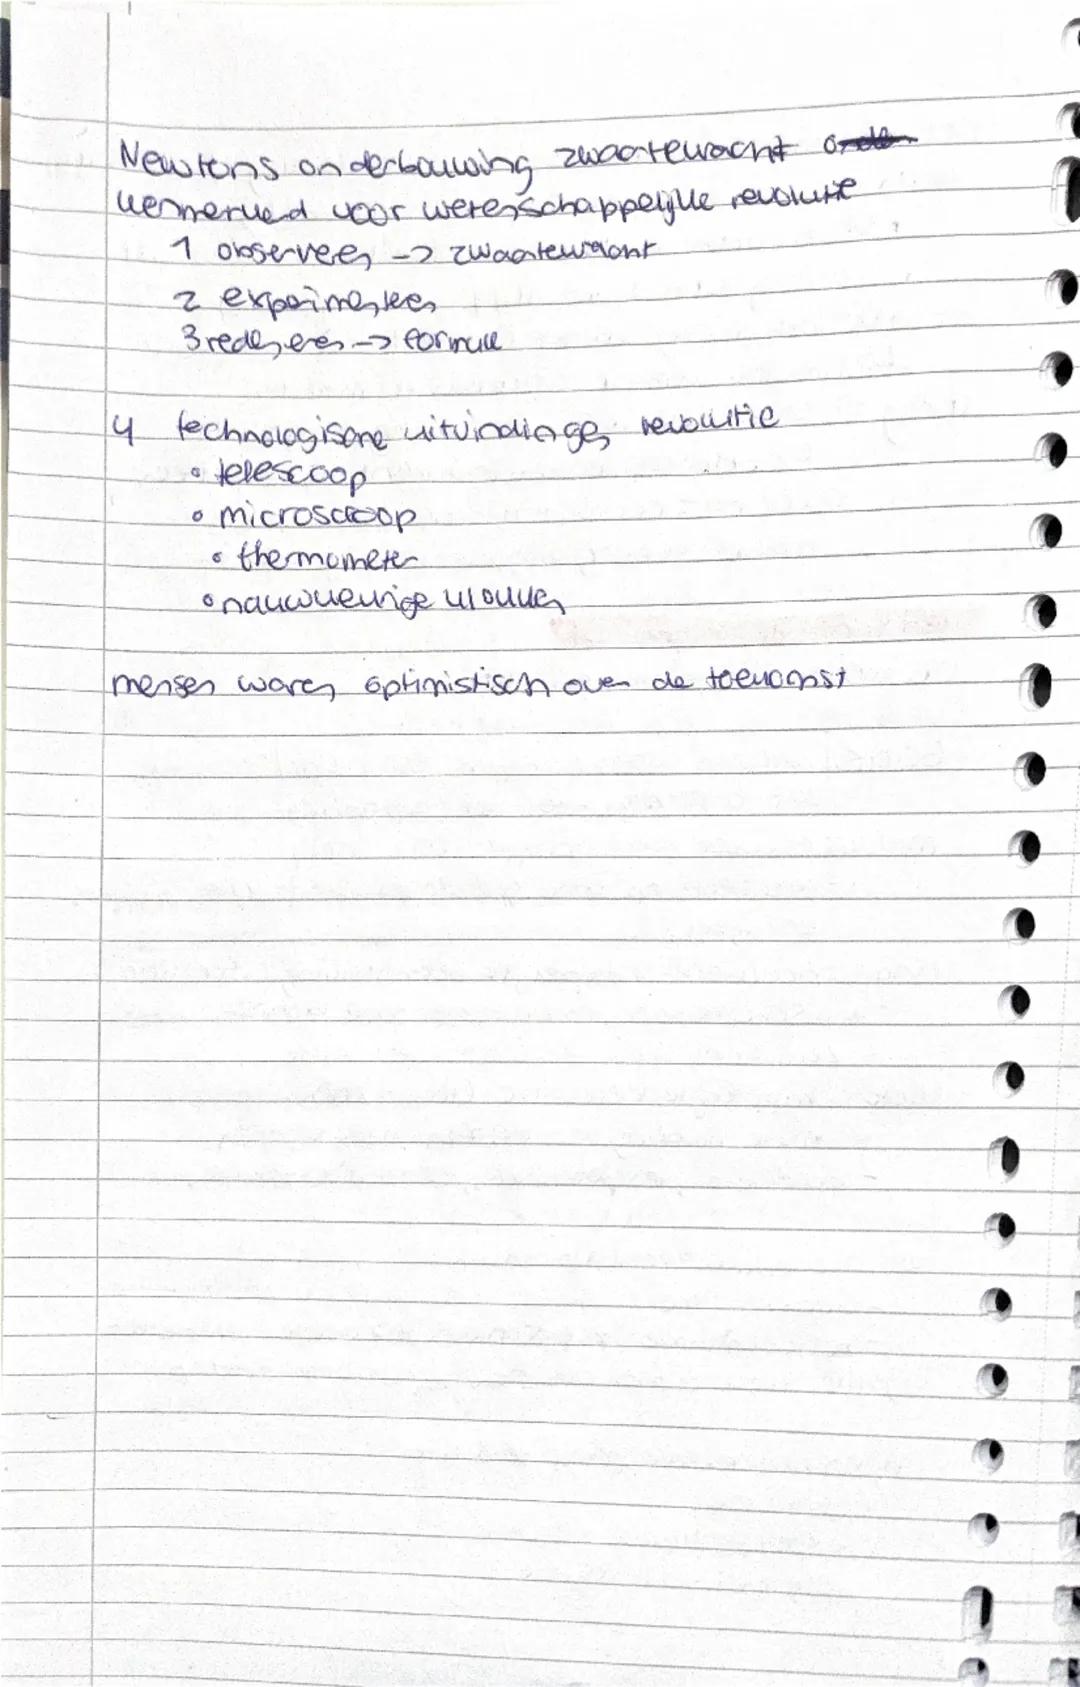 Newtons onderbouwing zwaartekracht
kenmerkend voor wetenschappelijke revolutie
1 observeren -> zwaartekracht
2 experimenteren
3 redeneren -> formule
4 technologische uitvindingen revolutie
• telescoop
• microscoop
• thermometer
• nauwkeurige klokken
mensen waren optimistisch over de toekomst